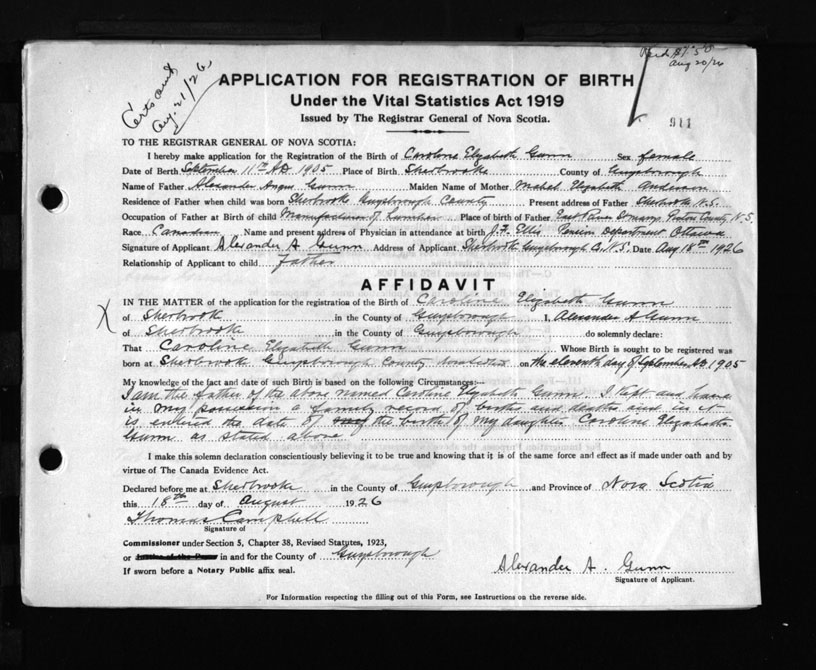 Certs sent
Aug. 21/26
Aug 20/26
911
APPLICATION FOR REGISTRATION OF BIRTH
Under the Vital Statistics Act 1919
Issued by The Registrar General of Nova Scotia.
TO THE REGISTRAR GENERAL OF NOVA SCOTIA:
I hereby make application for the Registration of the Birth of Caroline Elizabeth Gunn Sex female
Date of Birth September 11th AD 1905 Place of Birth Sherbrooke County of Guysborough
Name of Father Alexander Angus Gunn Maiden Name of Mother Mabel Elizabeth Anderson
Residence of Father when child was born Sherbrooke Guysborough County Present address of Father Sherbrooke N.S.
Occupation of Father at Birth of child Manufacturer of Lumber Place of birth of Father East River St Marys Pictou County N.S.
Race Canadian Name and present address of Physician in attendance at birth J.F. Ellis Pension Department Ottawa
Signature of Applicant Alexander A Gunn Address of Applicant Sherbrooke Guysborough Co. N.S. Date Aug 18th 1926
Relationship of Applicant to child Father
AFFIDAVIT
IN THE MATTER of the application for the registration of the Birth of Caroline Elizabeth Gunn
of Sherbrook in the County of Guysborough I, Alexander A Gunn
of Sherbrook in the County of Guysborough do solemnly declare:
That Caroline Elizabeth Gunn Whose Birth is sought to be registered was
born at Sherbrook Guysborough County on the eleventh day of September AD 1905
My knowledge of the fact and date of such Birth is based on the following Circumstances:—
I am the father of the above named Caroline Elizabeth Gunn. I kept and have
in my possession a family record of births and deaths and in it
is entered the date of the birth of my daughter Caroline Elizabeth
Gunn as stated above
I make this solemn declaration conscientiously believing it to be true and knowing that it is of the same force and effect as if made under oath and by
virtue of The Canada Evidence Act.
Declared before me at Sherbrooke in the County of Guysborough and Province of Nova Scotia
this 18th day of August 1926
Thomas Campbell
Signature of
Commissioner under Section 5, Chapter 38, Revised Statutes, 1923,
or in and for the County of Guysborough
If sworn before a Notary Public affix seal.
Alexander A. Gunn
Signature of Applicant.
For Information respecting the filling out of this Form, see Instructions on the reverse side.